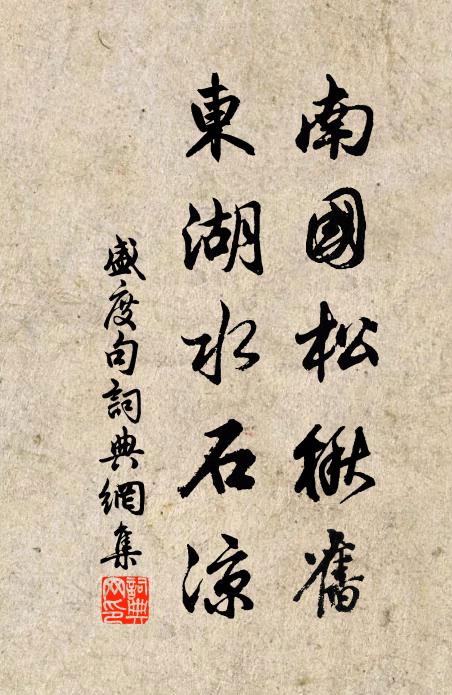 南國松楸舊
東湖水石涼
盛度句詞典網集
詞典网印